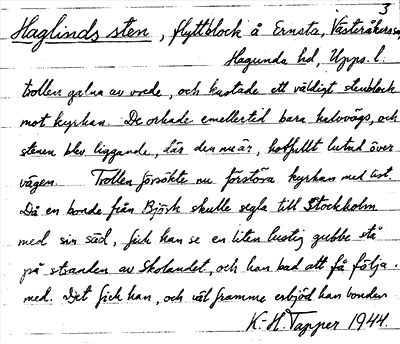 3
Haglinds sten, flyttblock å Ernsta, Västeråkers sn,
Hagunda hd, Upps. l.
trollen galna av vrede, och kastade ett väldigt stenblock
mot kyrkan. De orkade emellertid bara halvvägs, och
stenen blev liggande, där den nu är, hotfullt lutad över
vägen. Trollen försökte nu förstöra kyrkan med list.
Då en bonde från Björk skulle segla till Stockholm
med sin säd, fick han se en liten lustig gubbe stå
på stranden av Skolandet, och han bad att få följa.
med. Det fick han, och väl framme erbjöd han bonden
K.-H. Tapper 1944.